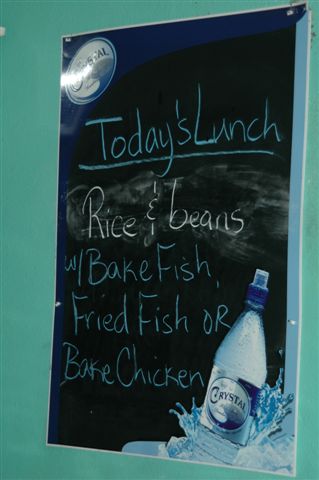 CRYSTAL
Today's Lunch
Rice & beans
w/ Bake Fish,
Fried Fish OR
Bake Chicken
CRYSTAL